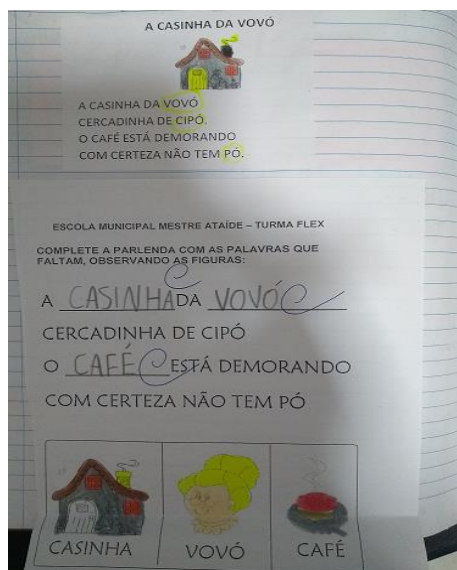 A CASINHA DA VOVÓ
A CASINHA DA VOVÓ
CERCADINHA DE CIPÓ.
O CAFÉ ESTÁ DEMORANDO
COM CERTEZA NÃO TEM PÓ.
ESCOLA MUNICIPAL MESTRE ATAÍDE – TURMA FLEX
COMPLETE A PARLENDA COM AS PALAVRAS QUE
FALTAM, OBSERVANDO AS FIGURAS:
A CASINHA DA VOVÓ
CERCADINHA DE CIPÓ
O CAFÉ ESTÁ DEMORANDO
COM CERTEZA NÃO TEM PÓ
CASINHA VOVÓ CAFÉ